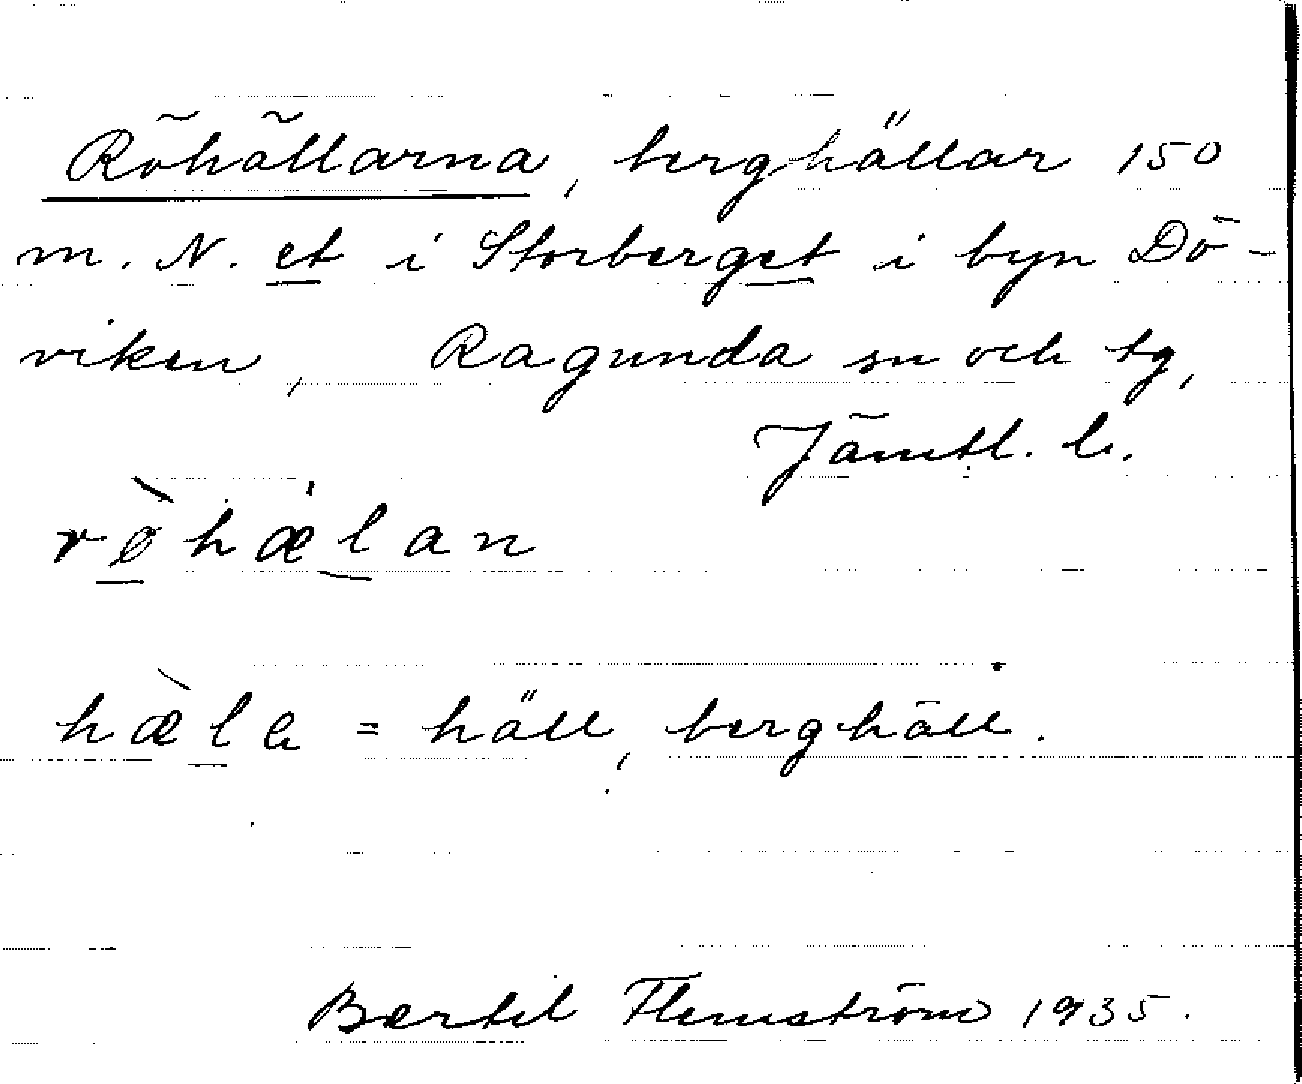 Röhällarna, berghällar 150
m. N. et i Storberget i byn Dö-
viken, Ragunda sn och tg,
Jämtl. l.
rø̀hælan
hæ̀la = häll, berghäll.
Bertil Flemström 1935.